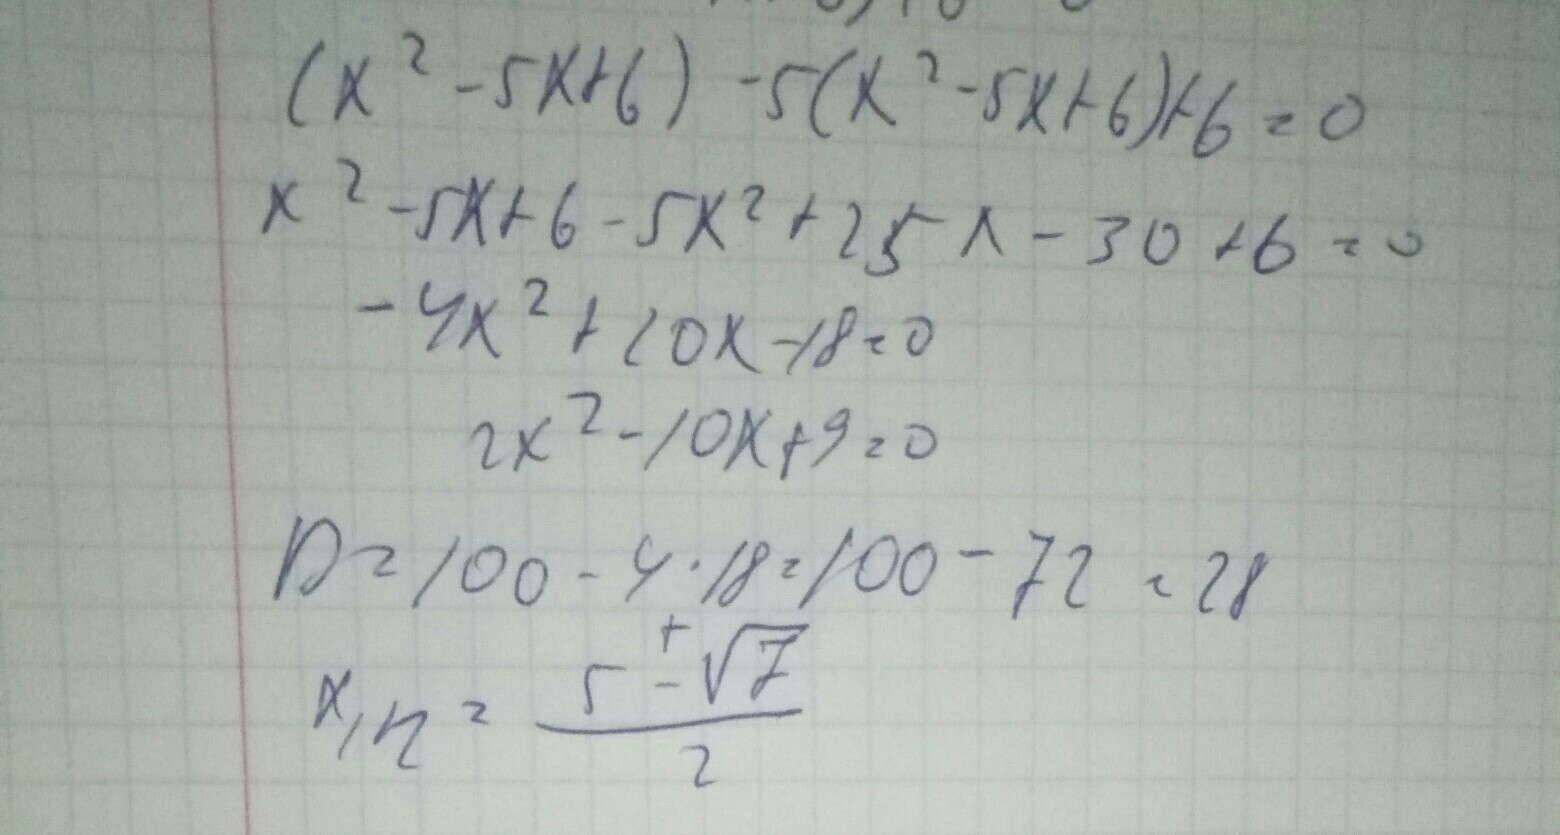 (x² -5x+6) -5(x²-5x+6)+6=0
x²-5x+6-5x²+25x-30+6=0
-4x²+20x-18=0
2x²-10x+9=0
D=100-4·18=100-72=28
x₁,₂=(5±√7)/2